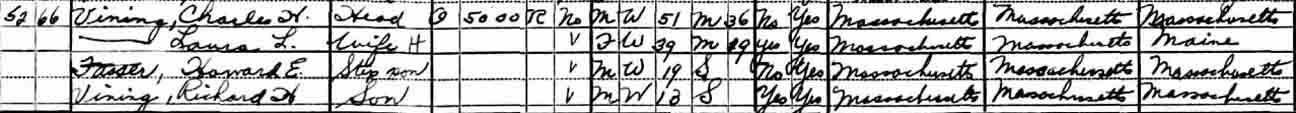 52 66 Vining, Charles H. Head O 5000 R No M W 51 M 36 No Yes Massachusetts Massachusetts Massachusetts
— Laura L. Wife H V F W 39 M 19 Yes Yes Massachusetts Massachusetts Maine
Howard E. Step son V M W 19 S No Yes Massachusetts Massachusetts Massachusetts
Vining, Richard H Son V M W 13 S Yes Yes Massachusetts Massachusetts Massachusetts